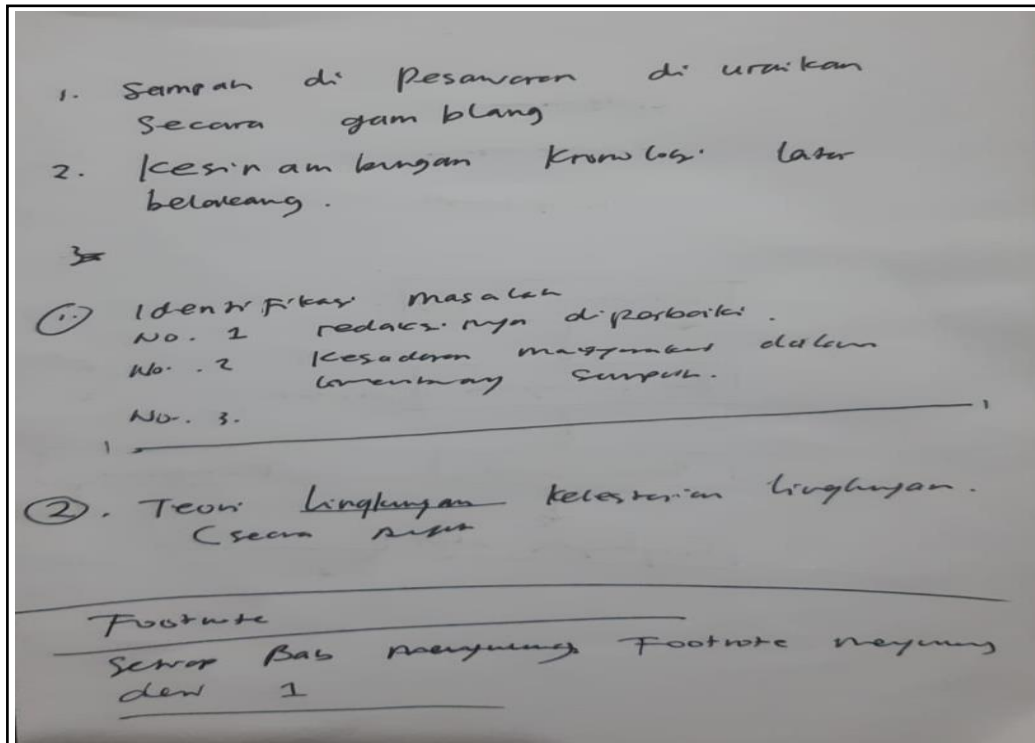 1. Sampah di Pesawaran di uraikan
secara gam blang
2. Kesinambungan Kronologi latar
belakang.
3
1. Identifikasi masalah
No. 1 redaksi nya diperbaiki.
No. 2 Kesadaran masyarakat dalam
sampah.
No. 3.
2. Teori Lingkungan kelestarian lingkungan.
(secara
Footnote
Setiap Bab Footnote
dari 1